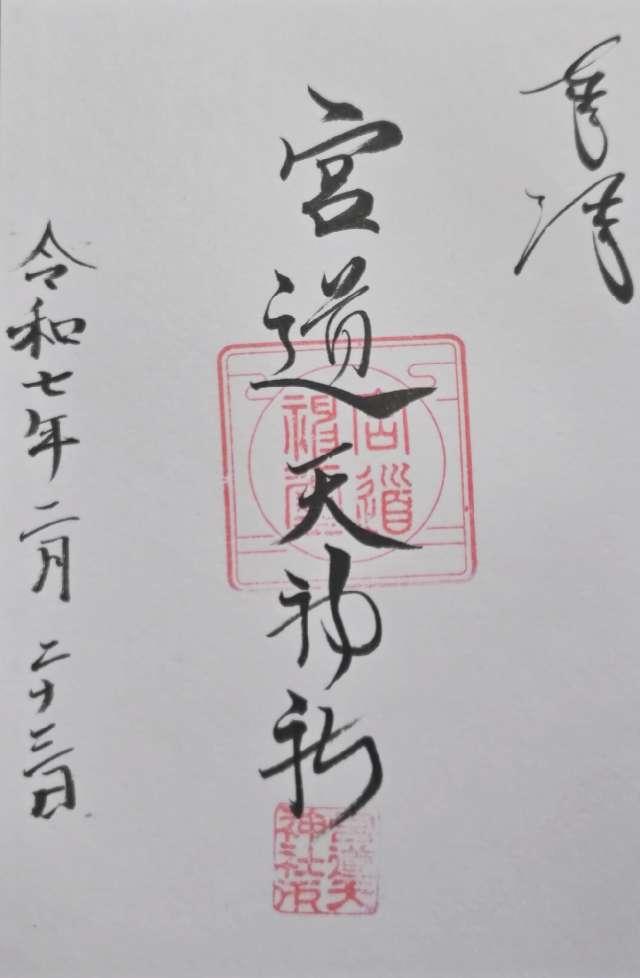 奉拝
宮道天神社
宮道神社
宮道天神社印
令和七年二月二十三日